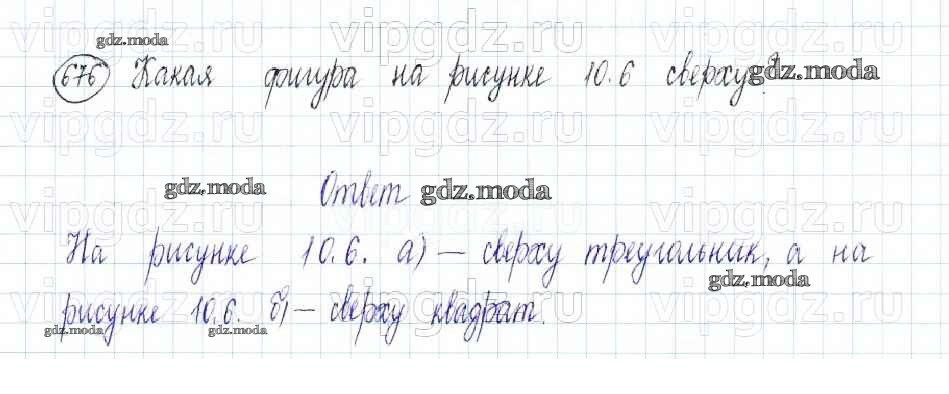 vipgdz.ru vipgdz.ru vipgdz.ru
gdz.moda
676 Какая фигура на рисунке 10.6 сверху? gdz.moda
vipgdz.ru vipgdz.ru vipgdz.ru
gdz.moda Ответ gdz.moda
vipgdz.ru vipgdz.ru vipgdz.ru
На рисунке 10.6. а) — сверху треугольник, а на
gdz.moda
рисунке 10.6. б) — сверху квадрат.
vipgdz.ru vipgdz.ru vipgdz.ru
gdz.moda gdz.moda gdz.moda